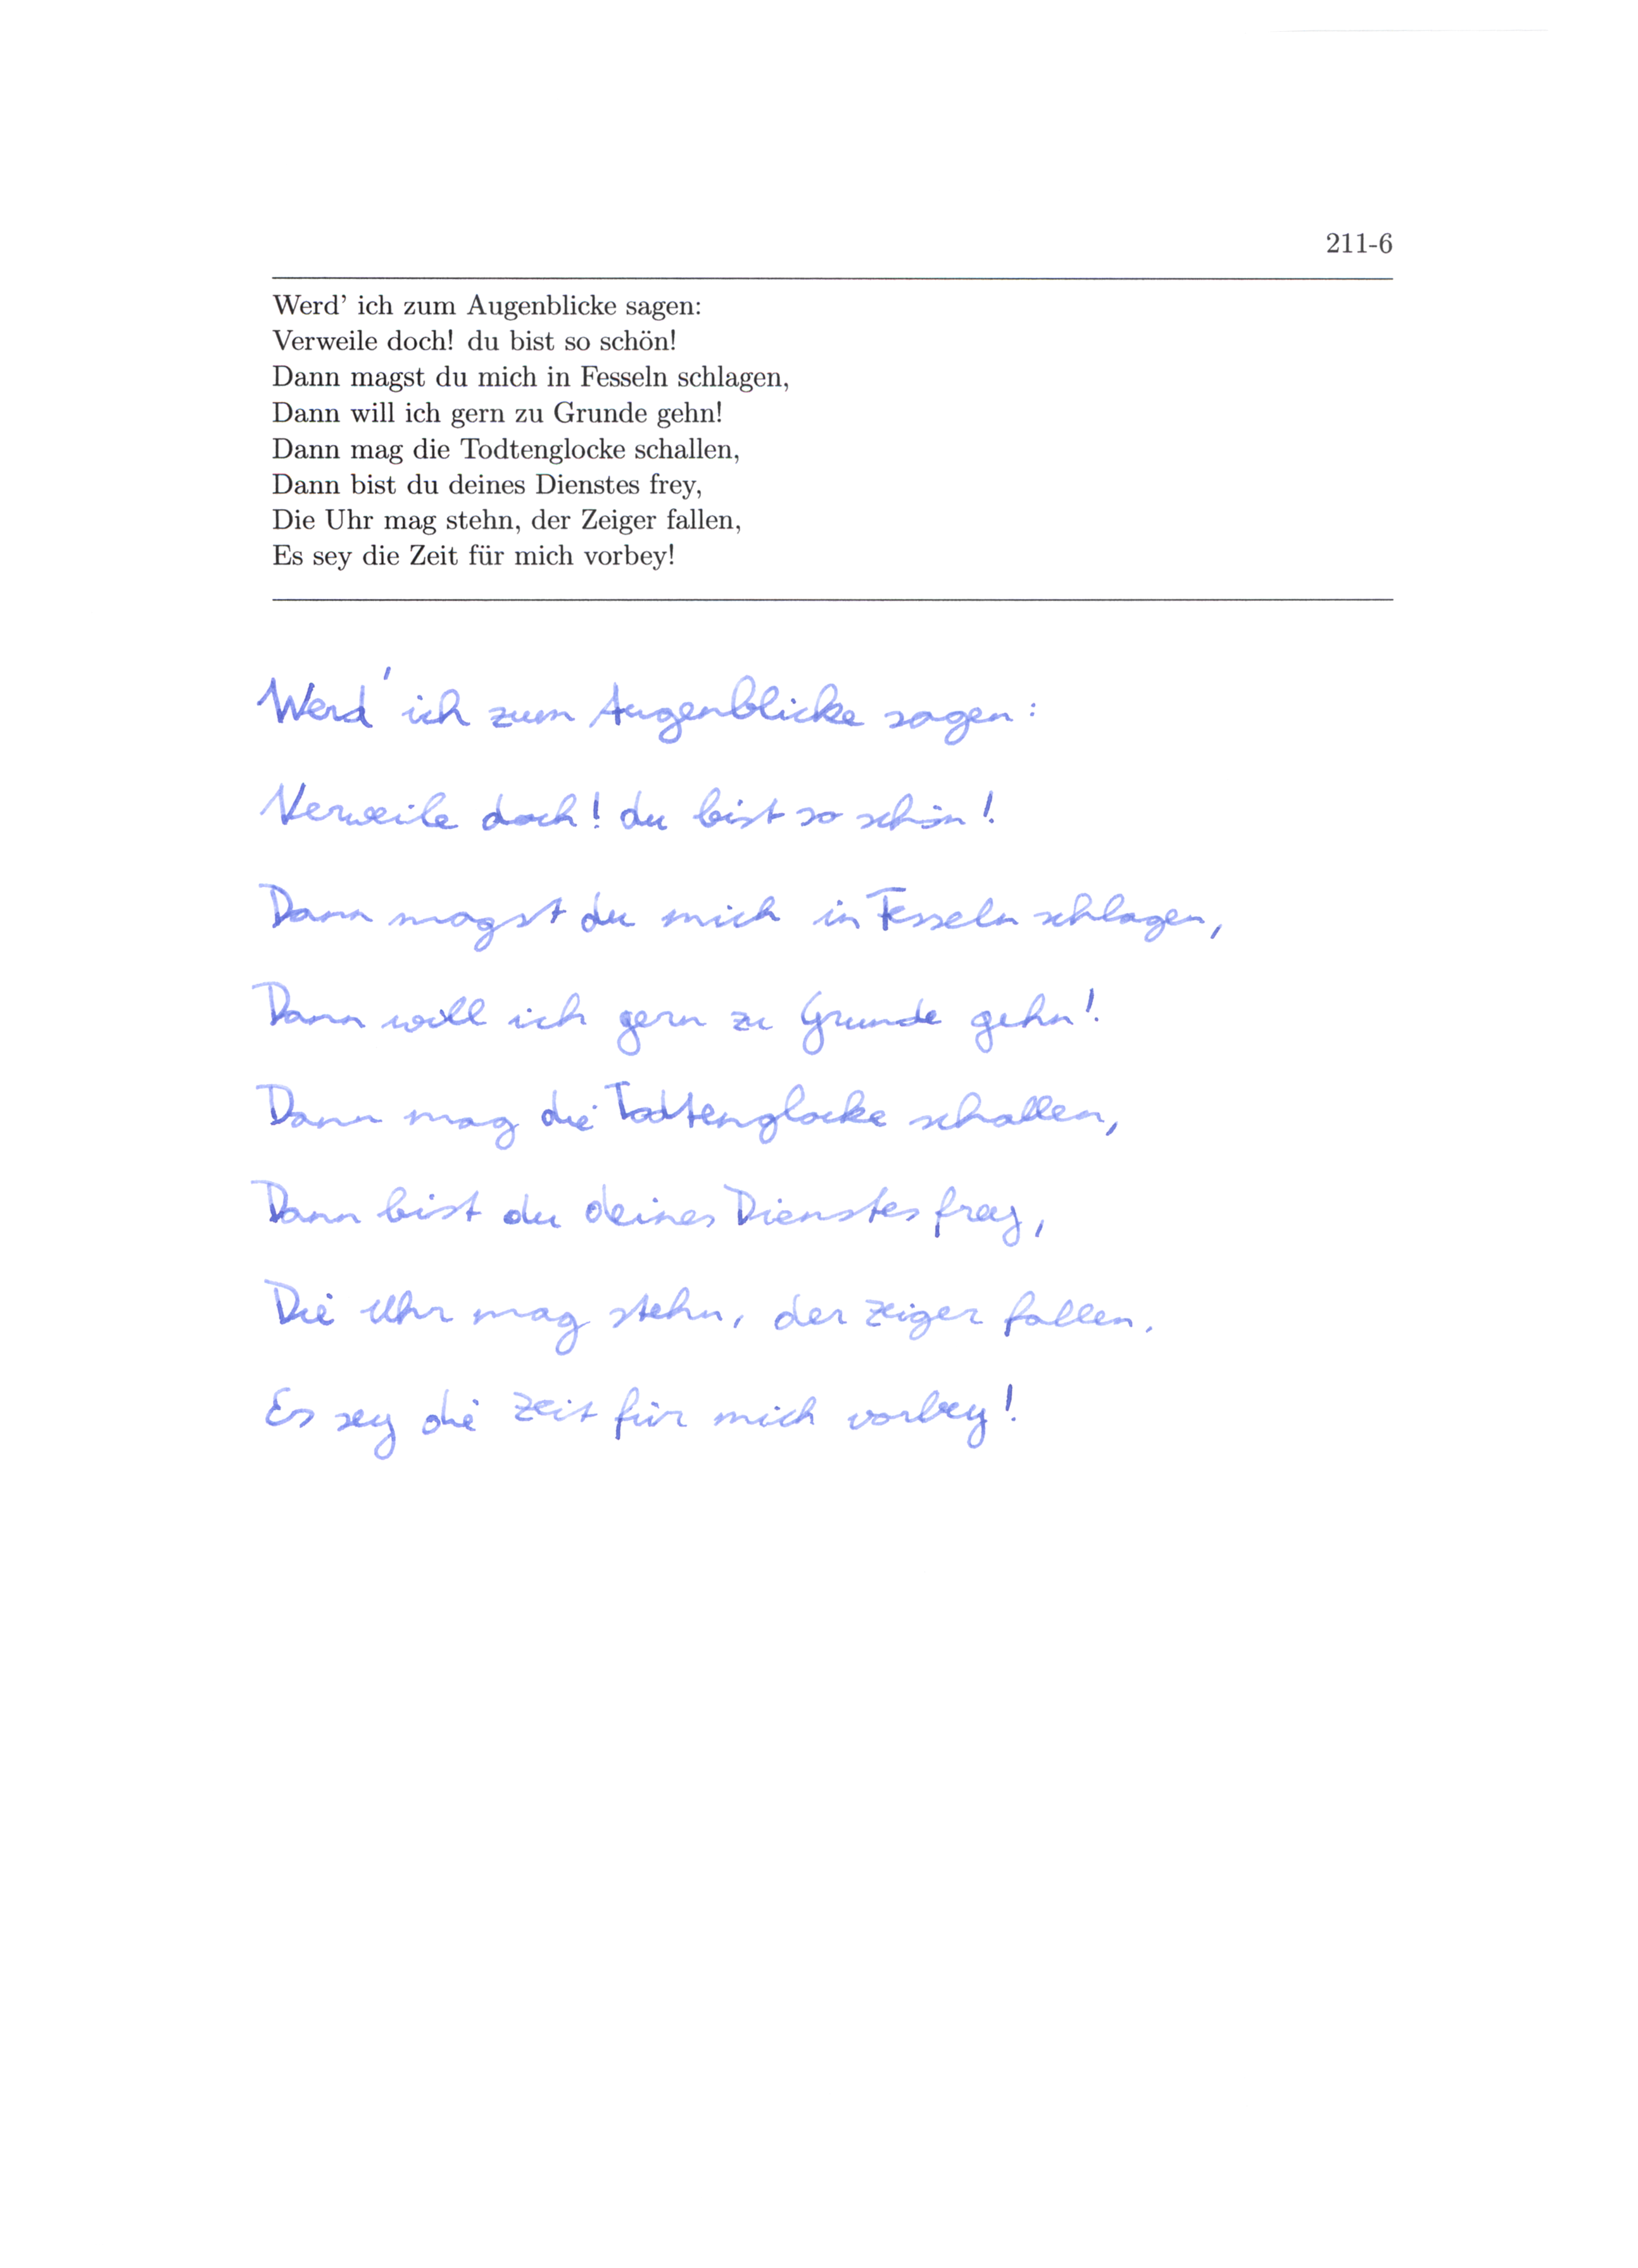 211-6
Werd' ich zum Augenblicke sagen:
Verweile doch! du bist so schön!
Dann magst du mich in Fesseln schlagen,
Dann will ich gern zu Grunde gehn!
Dann mag die Todtenglocke schallen,
Dann bist du deines Dienstes frey,
Die Uhr mag stehn, der Zeiger fallen,
Es sey die Zeit für mich vorbey!
Werd' ich zum Augenblicke sagen:
Verweile doch! du bist so schön!
Dann magst du mich in Fesseln schlagen,
Dann will ich gern zu Grunde gehn!
Dann mag die Todtenglocke schallen,
Dann bist du deines Dienstes frey,
Die Uhr mag stehn, der Zeiger fallen.
Es sey die Zeit für mich vorbey!